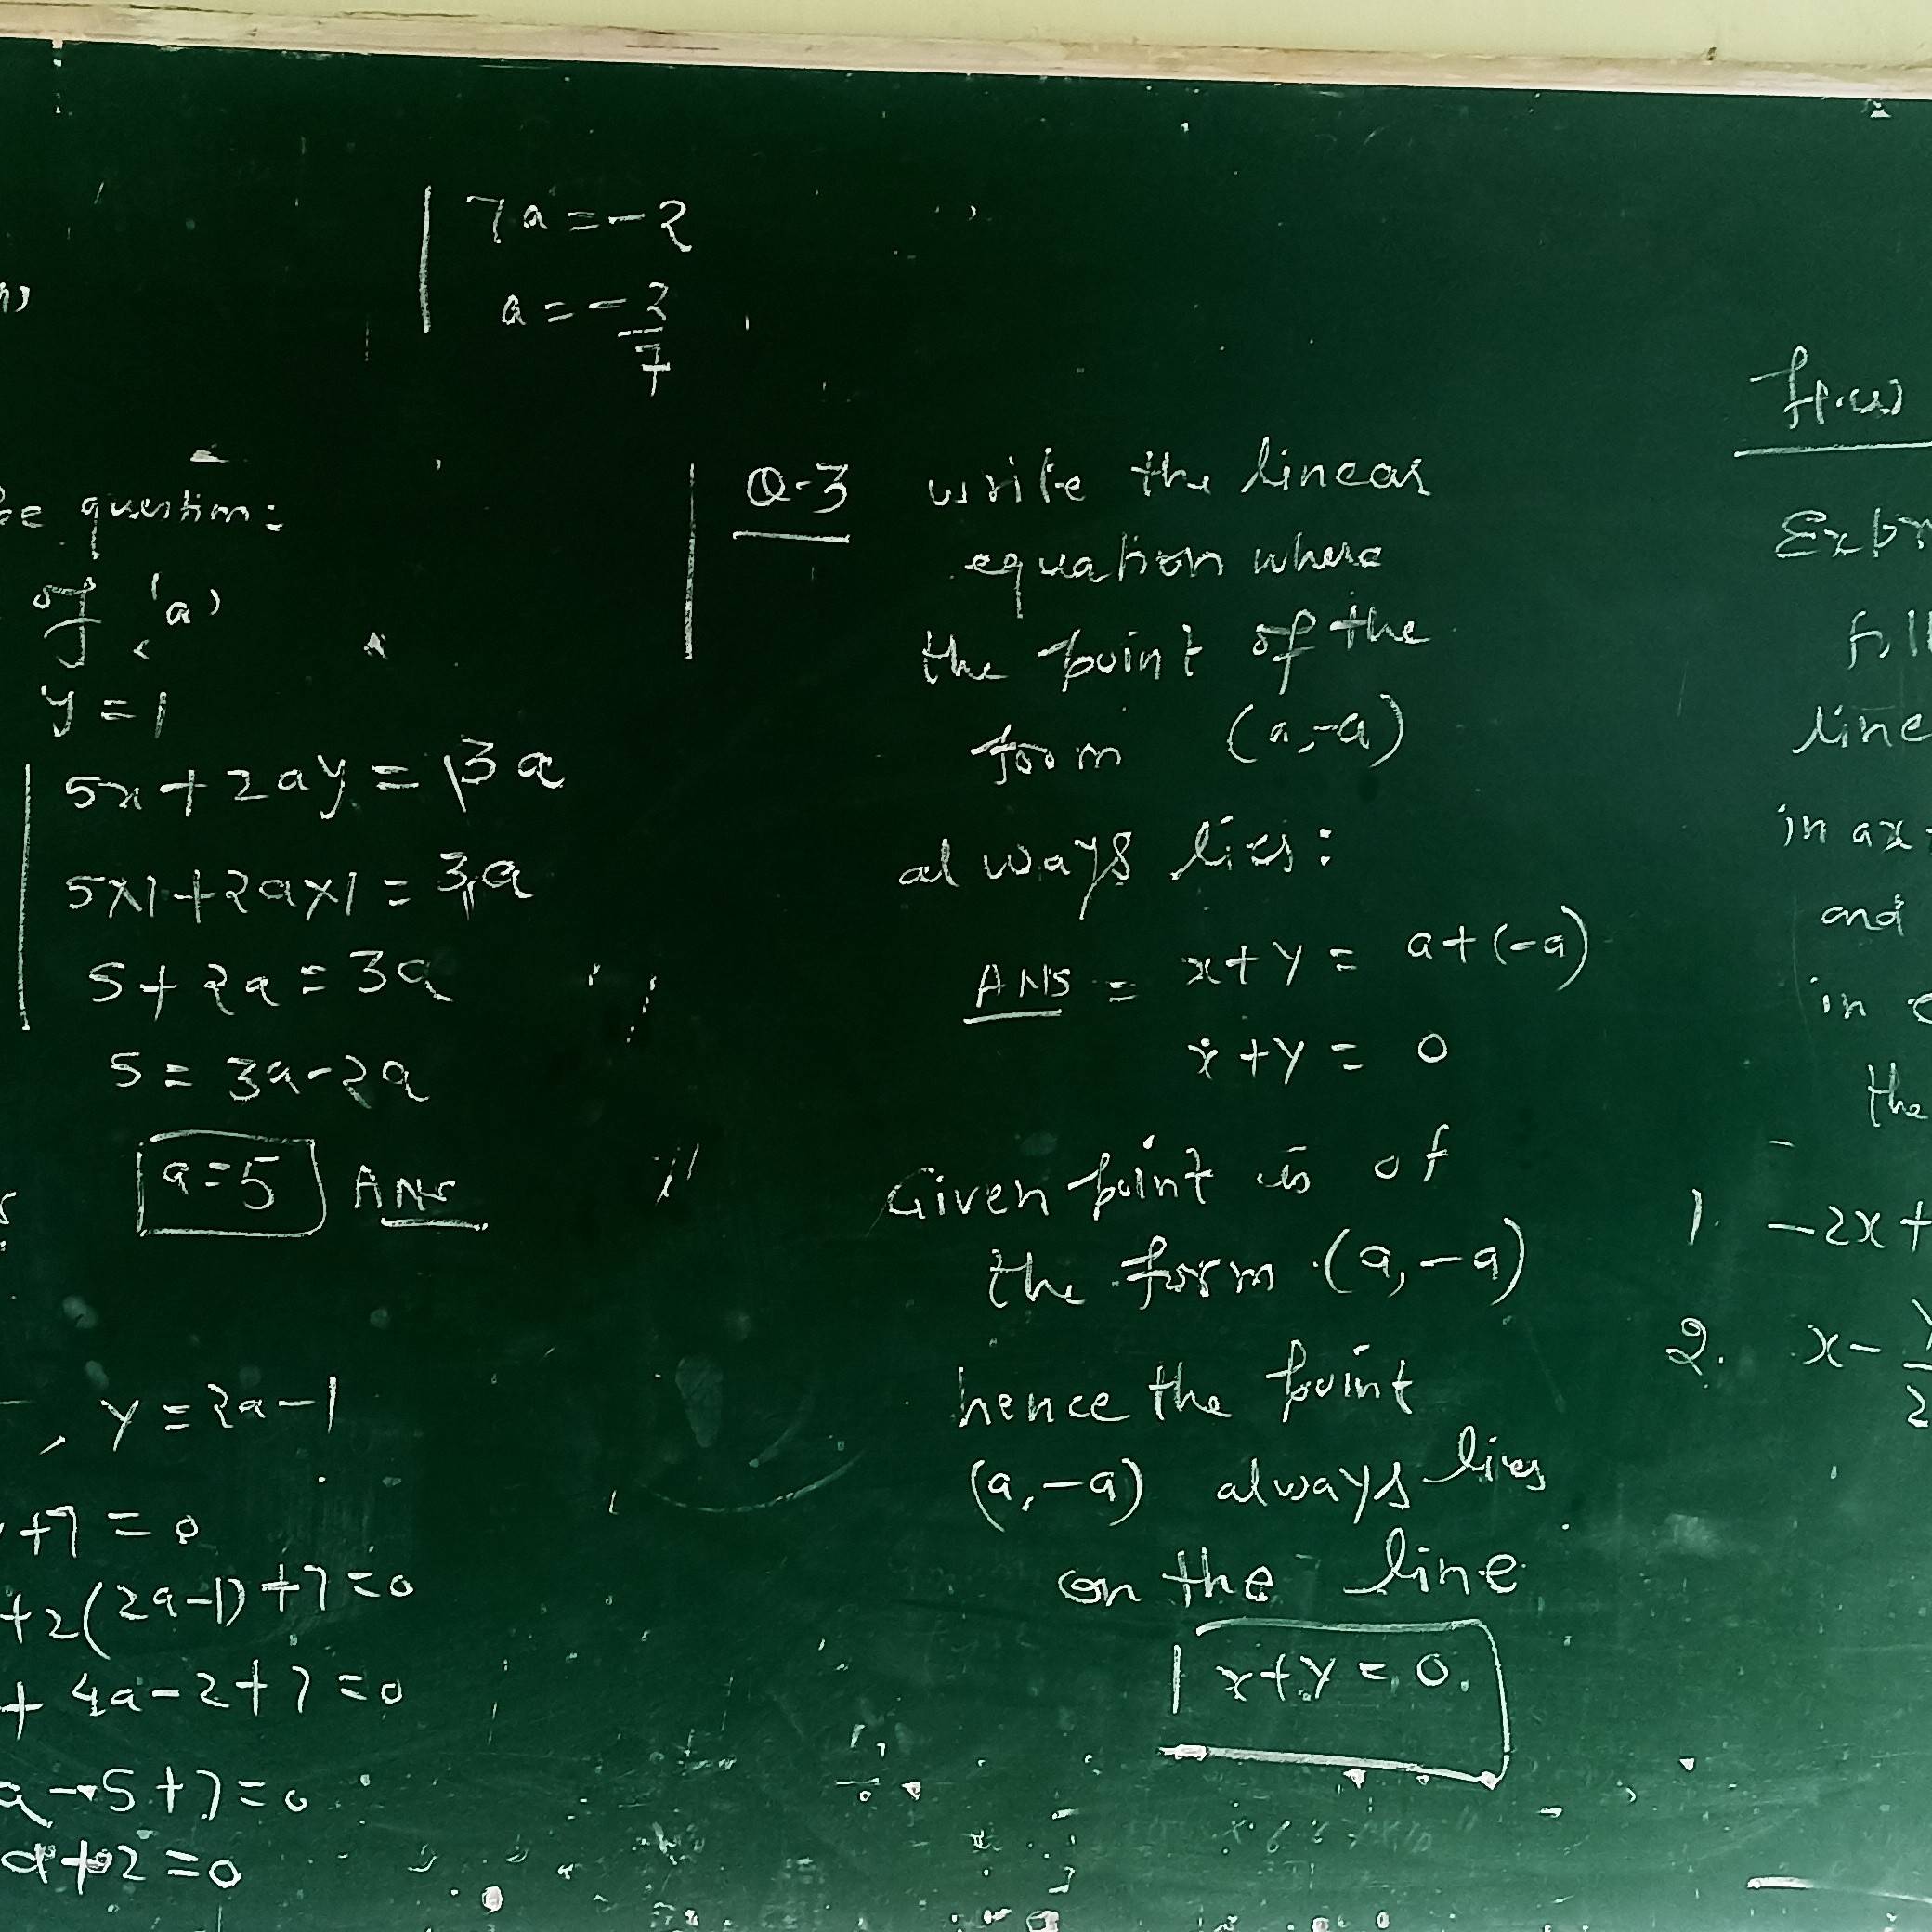 7a=-2
a=-2/7
question:
of 'a'
y=1
5x+2ay=3a
5x1+2ax1=3a
5+2a=3a
5=3a-2a
a=5 ANS
, y=2a-1
+7=0
+2(2a-1)+7=0
+4a-2+7=0
a-5+7=0
a+2=0
Q-3 write the linear
equation where
the point of the
form (a,-a)
always lies:
ANS = x+y = a+(-a)
x+y = 0
Given point is of
the form (a,-a)
hence the point
(a,-a) always lies
on the line
x+y=0.
H.W
line
in ax
and
in
the
1. -2x+
2. x-